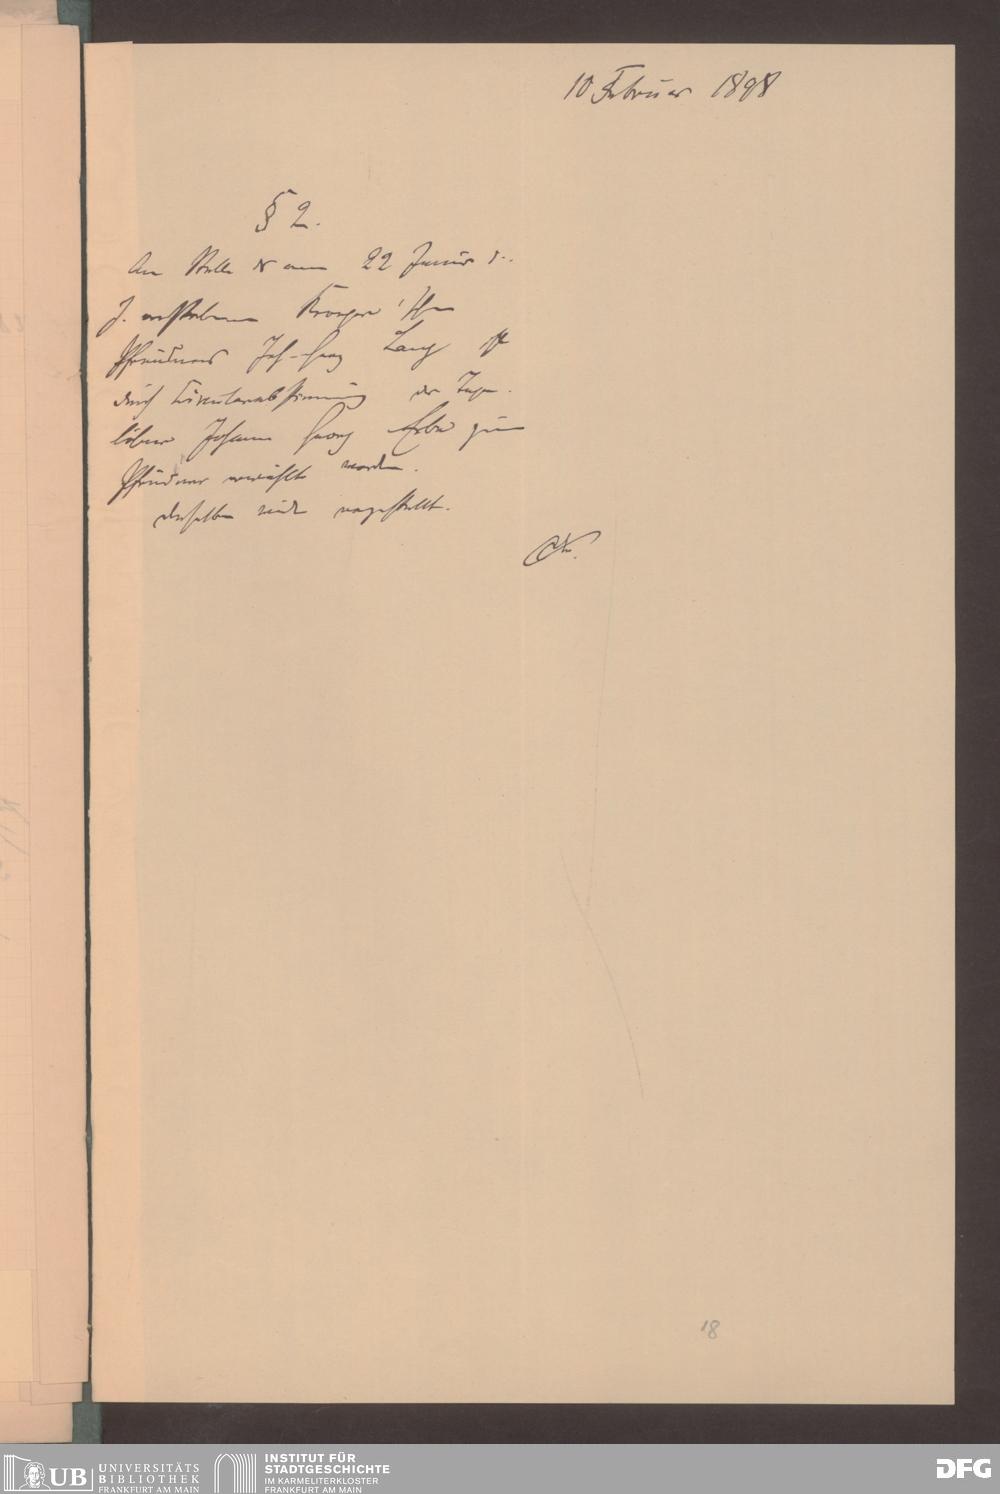 10 Februar 1898
§ 2.
An Stelle des am 22 Januar d.
J. verstorbenen
Pfründners Joh. Georg Lang ist
durch Circularabstimmung der Tage-
löhner Johann Georg Erbe zum
Pfründner erwählt worden.
derselbe wird vorgestellt.
18
UB UNIVERSITÄTS
BIBLIOTHEK
FRANKFURT AM MAIN
INSTITUT FÜR
STADTGESCHICHTE
IM KARMELITERKLOSTER
FRANKFURT AM MAIN
DFG